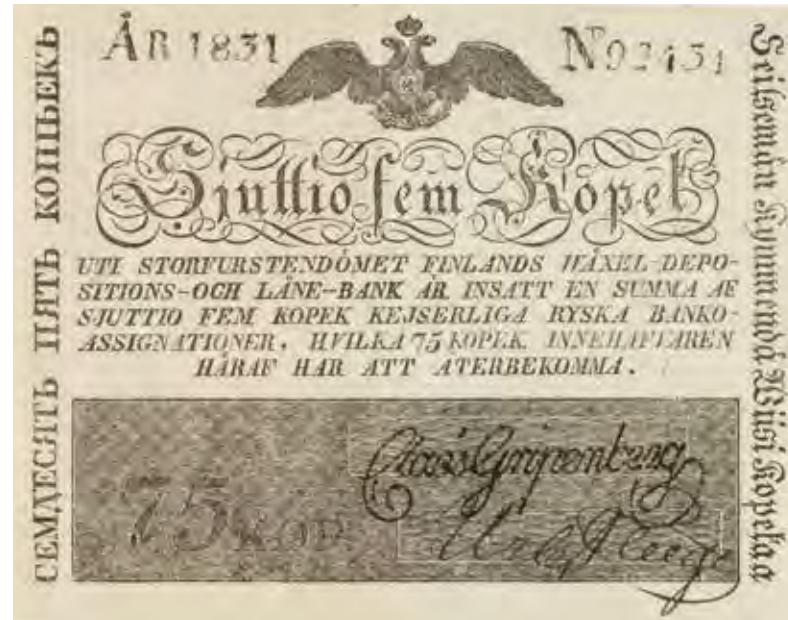 ÅR 1831
No 92454
Sjuttio fem Kopek
UTI STORFURSTENDÖMET FINLANDS WÄXEL-DEPO-
SITIONS-OCH LÅNE-BANK ÄR INSATT EN SUMMA AF
SJUTTIO FEM KOPEK KEJSERLIGA RYSKA BANKO-
ASSIGNATIONER, HVILKA 75 KOPEK INNEHAFVAREN
HÄRAF HAR ATT ATERBEKOMMA.
75 KOP.
Claës Gripenberg
СЕМДЕСЯТЬ ПЯТЬ КОПѢЕКЪ
Seitsemän Kymmendä Wiisi Kopekaa